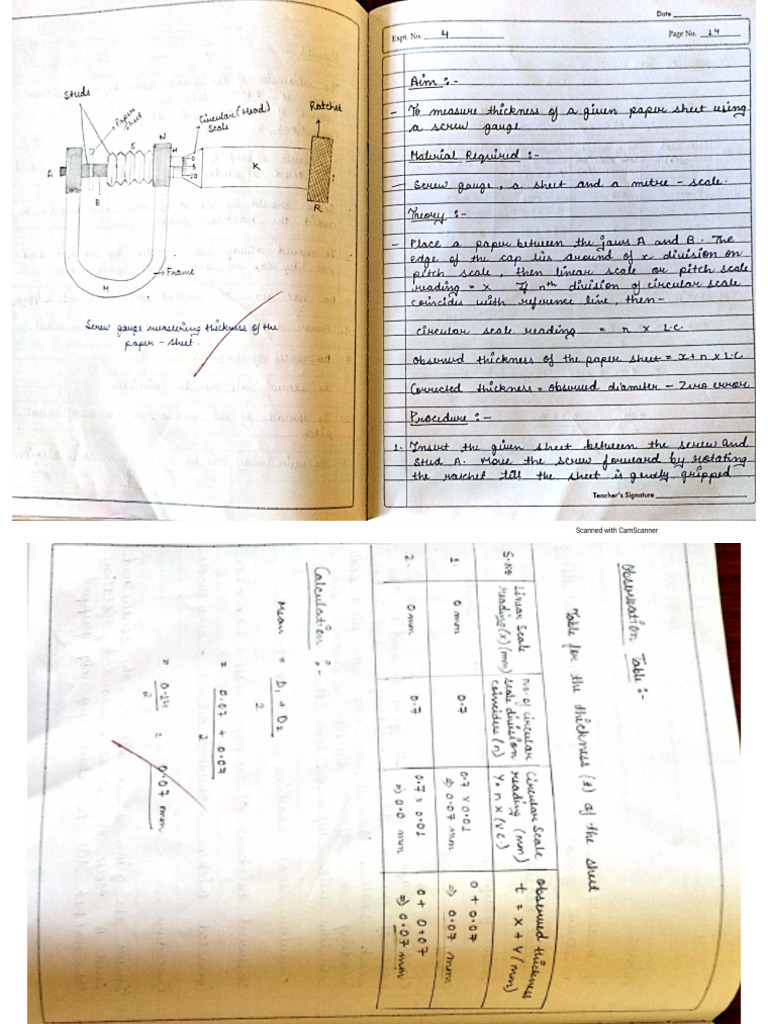 Studs
Paper
sheet
Circular (Head)
Scale
Ratchet
A
B
S
N
H
0
5
10
K
R
Frame
M
Screw gauge measuring thickness of the
paper - sheet.
Date
Expt. No. 4
Page No.
Aim :-
- To measure thickness of a given paper sheet using
a screw gauge
Material Required :-
- Screw gauge, a sheet and a metre - scale.
Theory :-
- Place a paper between the jaws A and B. The
edge of the cap lies around of x division on
pitch scale, then linear scale or pitch scale
reading = x If nth division of circular scale
coincides with reference line, then-
circular scale reading = n x L.C.
observed thickness of the paper sheet = x + n x L.C.
Corrected thickness = observed diameter - Zero error
Procedure :-
1. Insert the given sheet between the screw and
stud A. Move the screw forward by rotating
the ratchet till the sheet is gently gripped
Teacher's Signature
Scanned with CamScanner
Observation Table :-
Table for the thickness (t) of the sheet
S.No Linear Scale reading (x) (mm) No. of circular scale division coincides (n) Circular Scale reading (mm) Y = n x (V.C.) observed thickness t = X + Y (mm)
1. 0 mm 0.7 0.7 x 0.01 ⇒ 0.07 mm 0 + 0.07 ⇒ 0.07 mm
2. 0 mm 0.7 0.7 x 0.01 ⇒ 0.0 mm 0 + 0.07 ⇒ 0.07 mm
Calculation :-
Mean = D1 + D2
2
= 0.07 + 0.07
2
= 0.14 = 0.07 mm
2